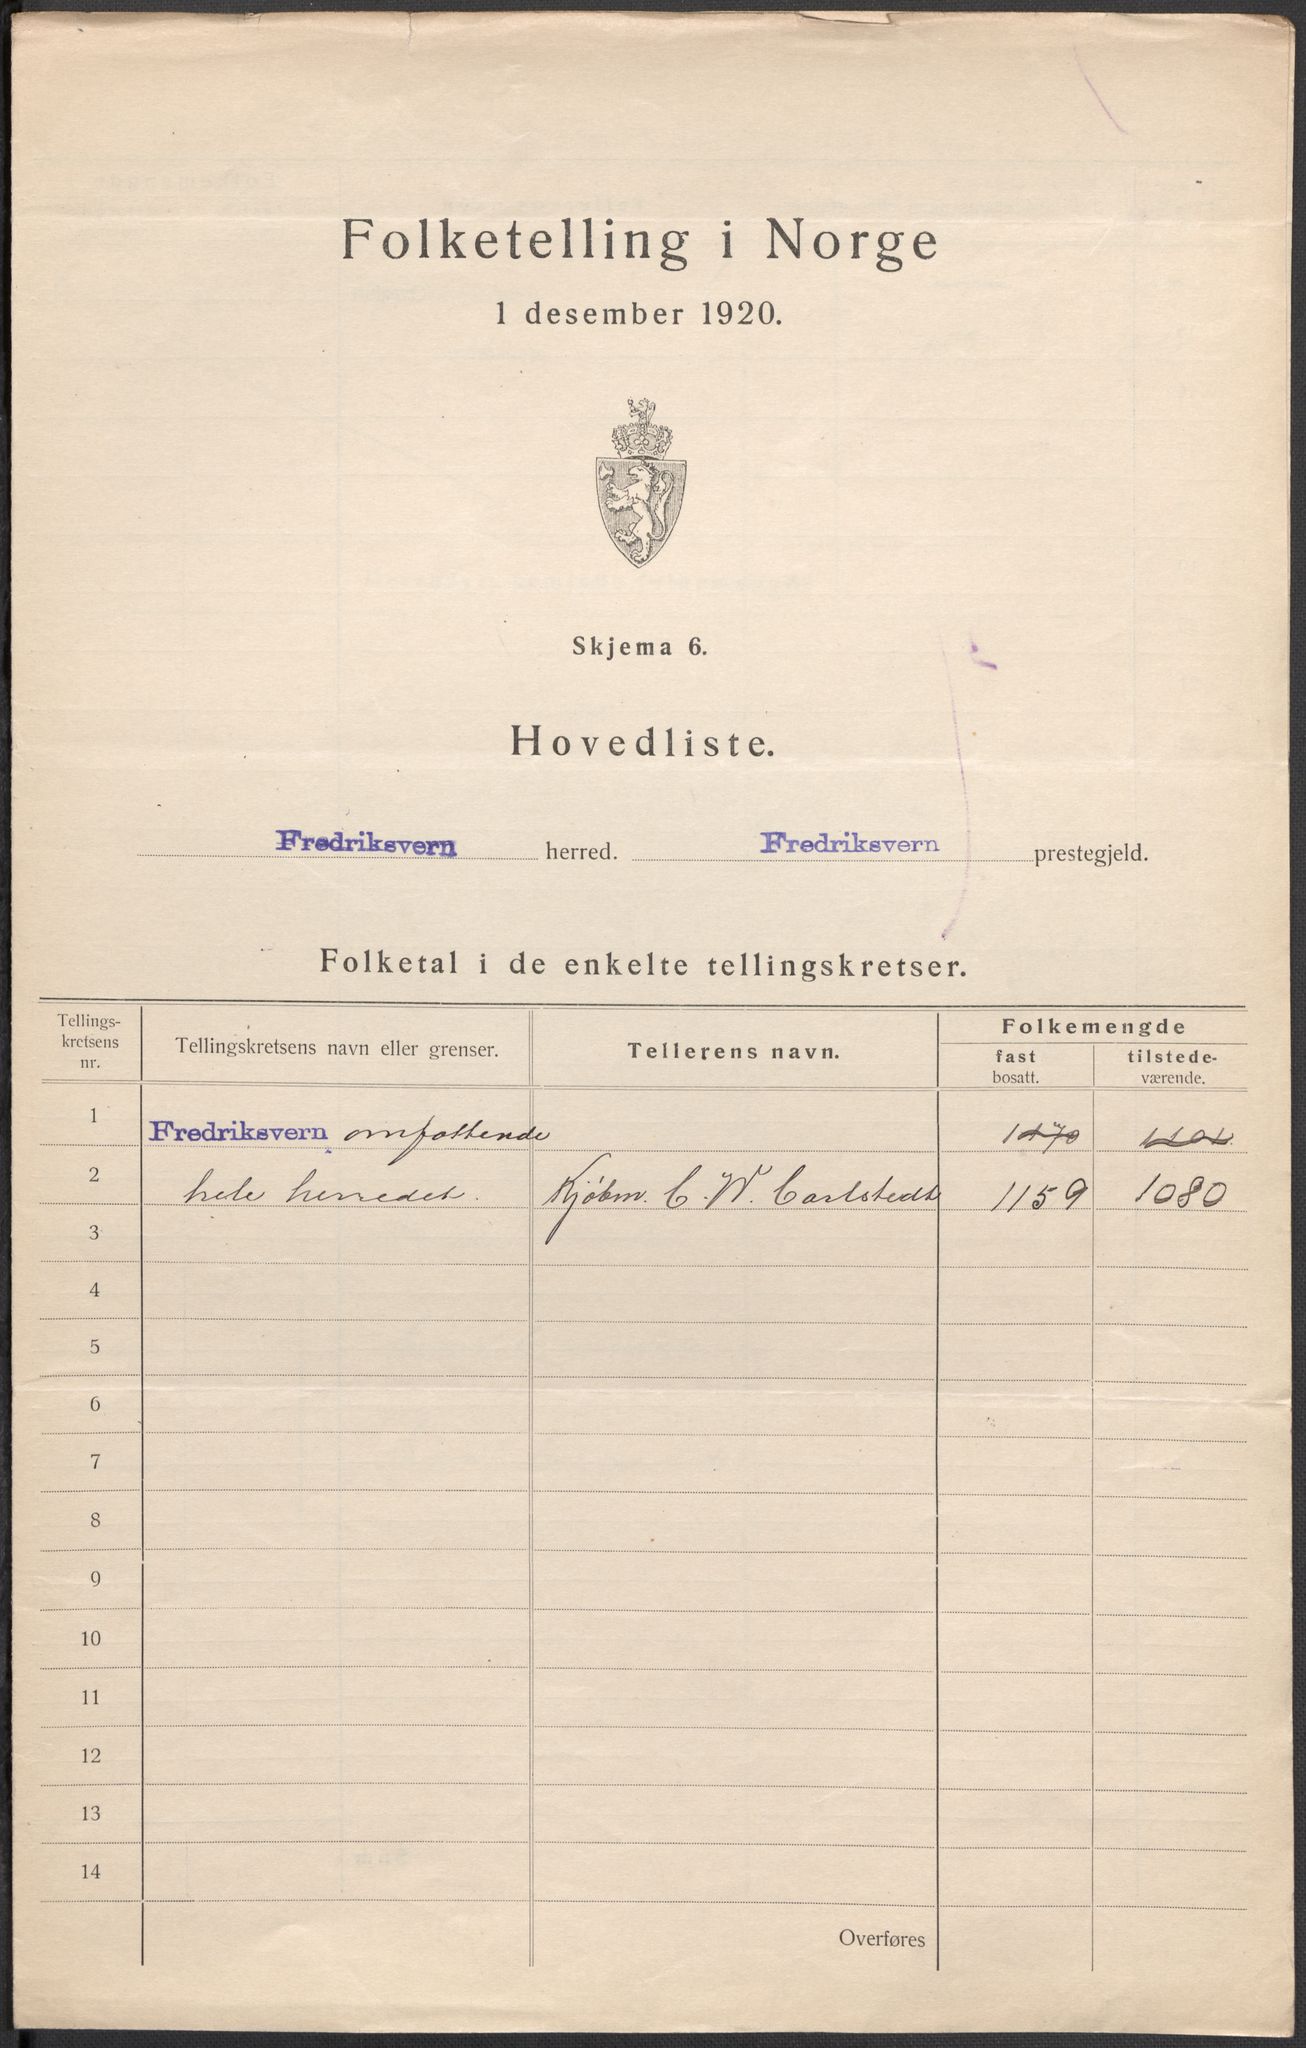 Folketelling i Norge
1 desember 1920.
Skjema 6.
Hovedliste.
Fredriksvern herred. Fredriksvern prestegjeld.
Folketal i de enkelte tellingskretser.
Tellings-
kretsens
nr.
Tellingskretsens navn eller grenser.
Tellerens navn.
Folkemengde
fast
bosatt.
tilstede-
værende.
1 Fredriksvern omfattende 1170
2 hele herredet. Kjøbm. C. W. Carlstedt 1159 1080
3
4
5
6
7
8
9
10
11
12
13
14
Overføres